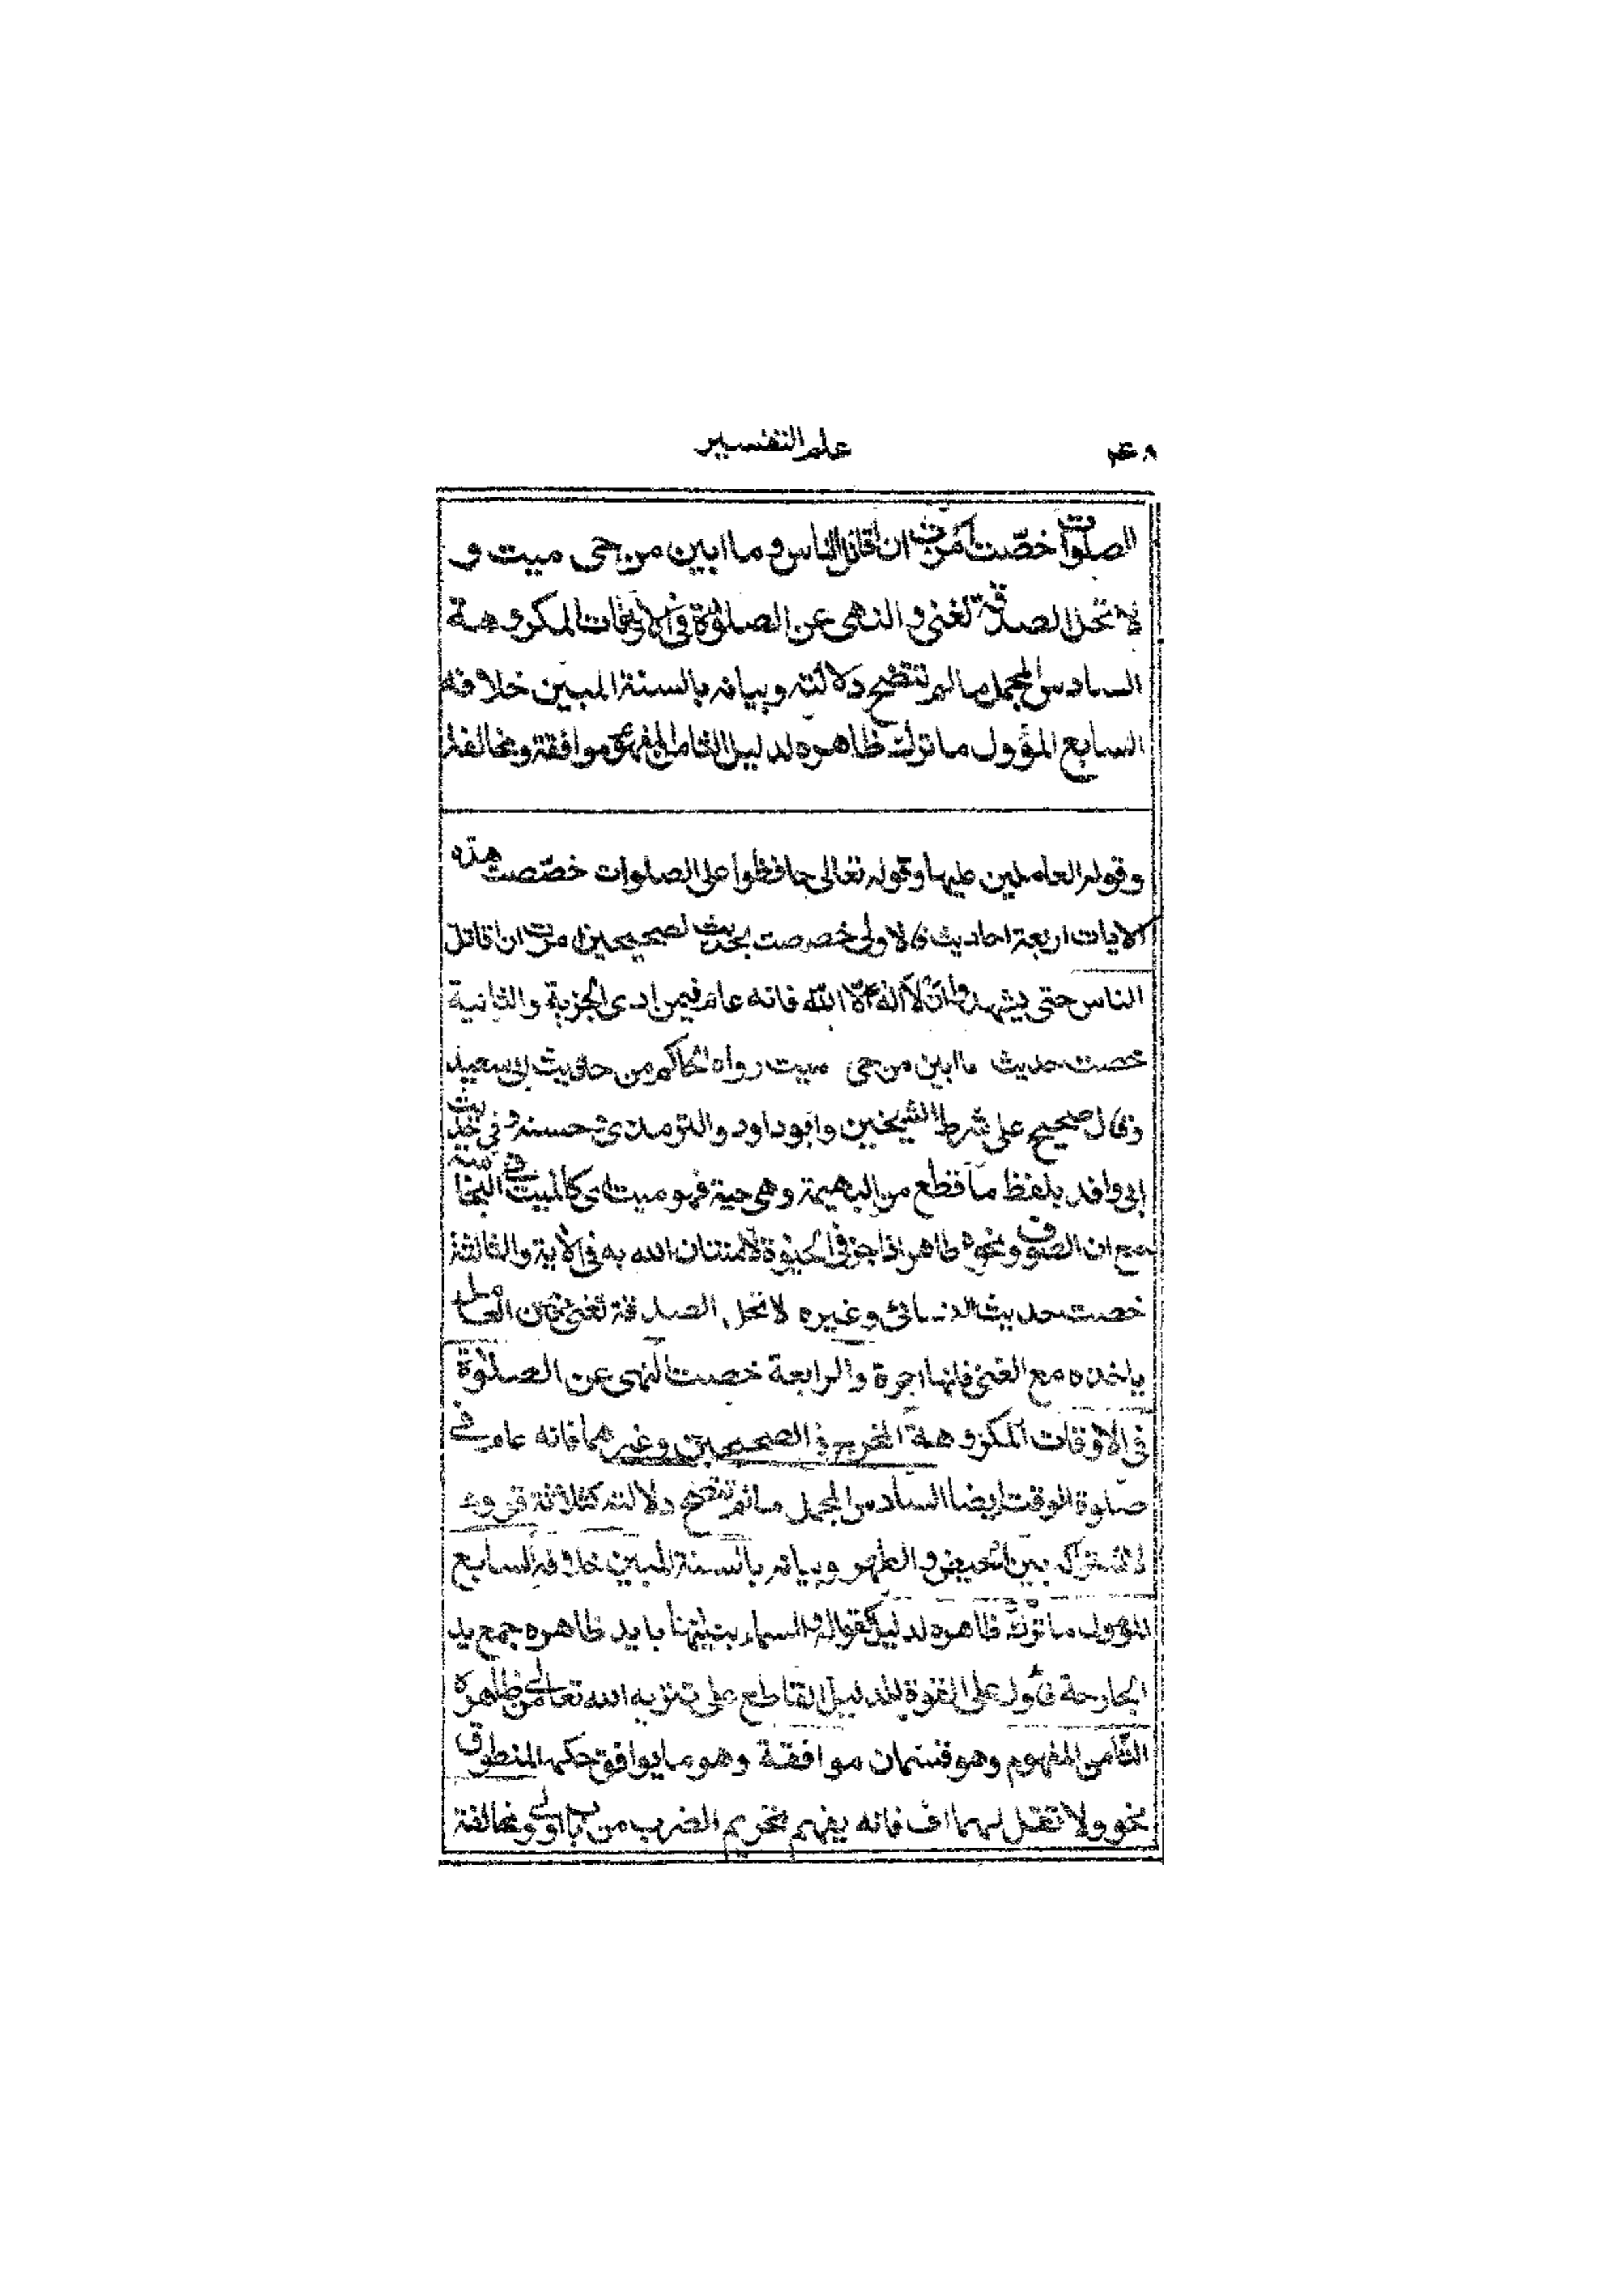 علم التفسير
الصلوات خصّت امرت ان اقاتل الناس وما ابين من حى ميت و
لا تحل الصدقة لغنى والنهى عن الصلوٰة فى الاوقات المكروهة
السادس المجمل مالم تتضح دلالته وبيانه بالسنة المبين خلافه
السابع المؤول ما ترك ظاهره لدليل الثامن المفهوم موافقة ومخالفة
وقوله العاملين عليها وقوله تعالى حافظوا على الصلوات خصّصت هذه
الايات اربعة احاديث فالاولى خصصت بحديث الصحيحين امرت ان اقاتل
الناس حتى يشهدوا ان لا اله الا الله فانه عام فيمن ادى الجزية والثانية
خصت حديث ما ابين من حى ميت رواه الحاكم من حديث ابى سعيد
وقال صحيح على شرط الشيخين وابو داود والترمذى وحسنه فى حديث
ابى واقد بلفظ ما قطع من البهيمة وهى حية فهو ميت اى كالميت فى النجاسة
مع ان الصوف ونحوه طاهر اذا جز فى الحيوة لامتنان الله به فى الاية والثالثة
خصت حديث النسائى وغيره لا تحل الصدقة لغنى فان العامل
ياخذه مع الغنى فانها اجرة والرابعة خصت النهى عن الصلوٰة
فى الاوقات المكروهة المخرج فى الصحيحين وغيرهما فانه عام فى
صلوة الوقت ايضا السادس المجمل مالم تتضح دلالته كثلاثة قروء
لاشتراكه بين الحيض والطهر وبيانه بالسنة المبين خلافه السابع
المؤول ما ترك ظاهره لدليل كقوله والسماء بنيناها بايد ظاهره جمع يد
الجارحة فاول على القوة للدليل القاطع على تنزيه الله تعالى عن ظاهره
الثامن المفهوم وهو قسمان موافقة وهو ما يوافق حكمه المنطوق
نحو ولا تقل لهما اف فانه يفهم تحريم الضرب من باب اولى ومخالفة